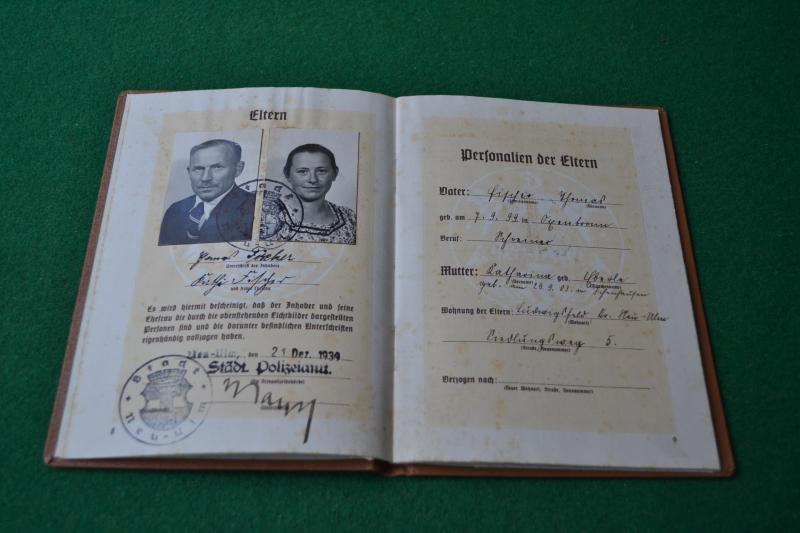 Eltern
Thomas Fischer
Unterschrift des Inhabers
Käthi Fischer
und seiner Ehefrau
Es wird hiermit bescheinigt, daß der Inhaber und seine
Ehefrau die durch die obenstehenden Lichtbilder dargestellten
Personen sind und die darunter befindlichen Unterschriften
eigenhändig vollzogen haben.
Neu-Ulm, den 21 Dez. 1939
Städt. Polizeiamt.
Stadt
Neu-Ulm
8
Personalien der Eltern
Vater: Fischer Thomas
(Vorname)
geb. am 7. 9. 99 in Oxenbronn
Beruf: Schreiner
Mutter: Katharina geb. Eberle
(Vorname)
geb. am 29. 9. 03. in Ichenhausen
Wohnung der Eltern: Ludwigsfeld Kr. Neu-Ulm
(Wohnort)
Siedlungsweg 5.
(Straße, Hausnummer)
Verzogen nach:
(Neuer Wohnort, Straße, Hausnummer)
9